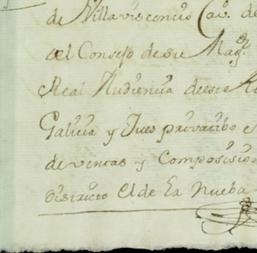 de Villavicencio Cav. de
del Consejo de su Mag.
Real Audiencia deeste
Galicia y Juez privatibo
de ventas y Composisio
districto El de La Nueba